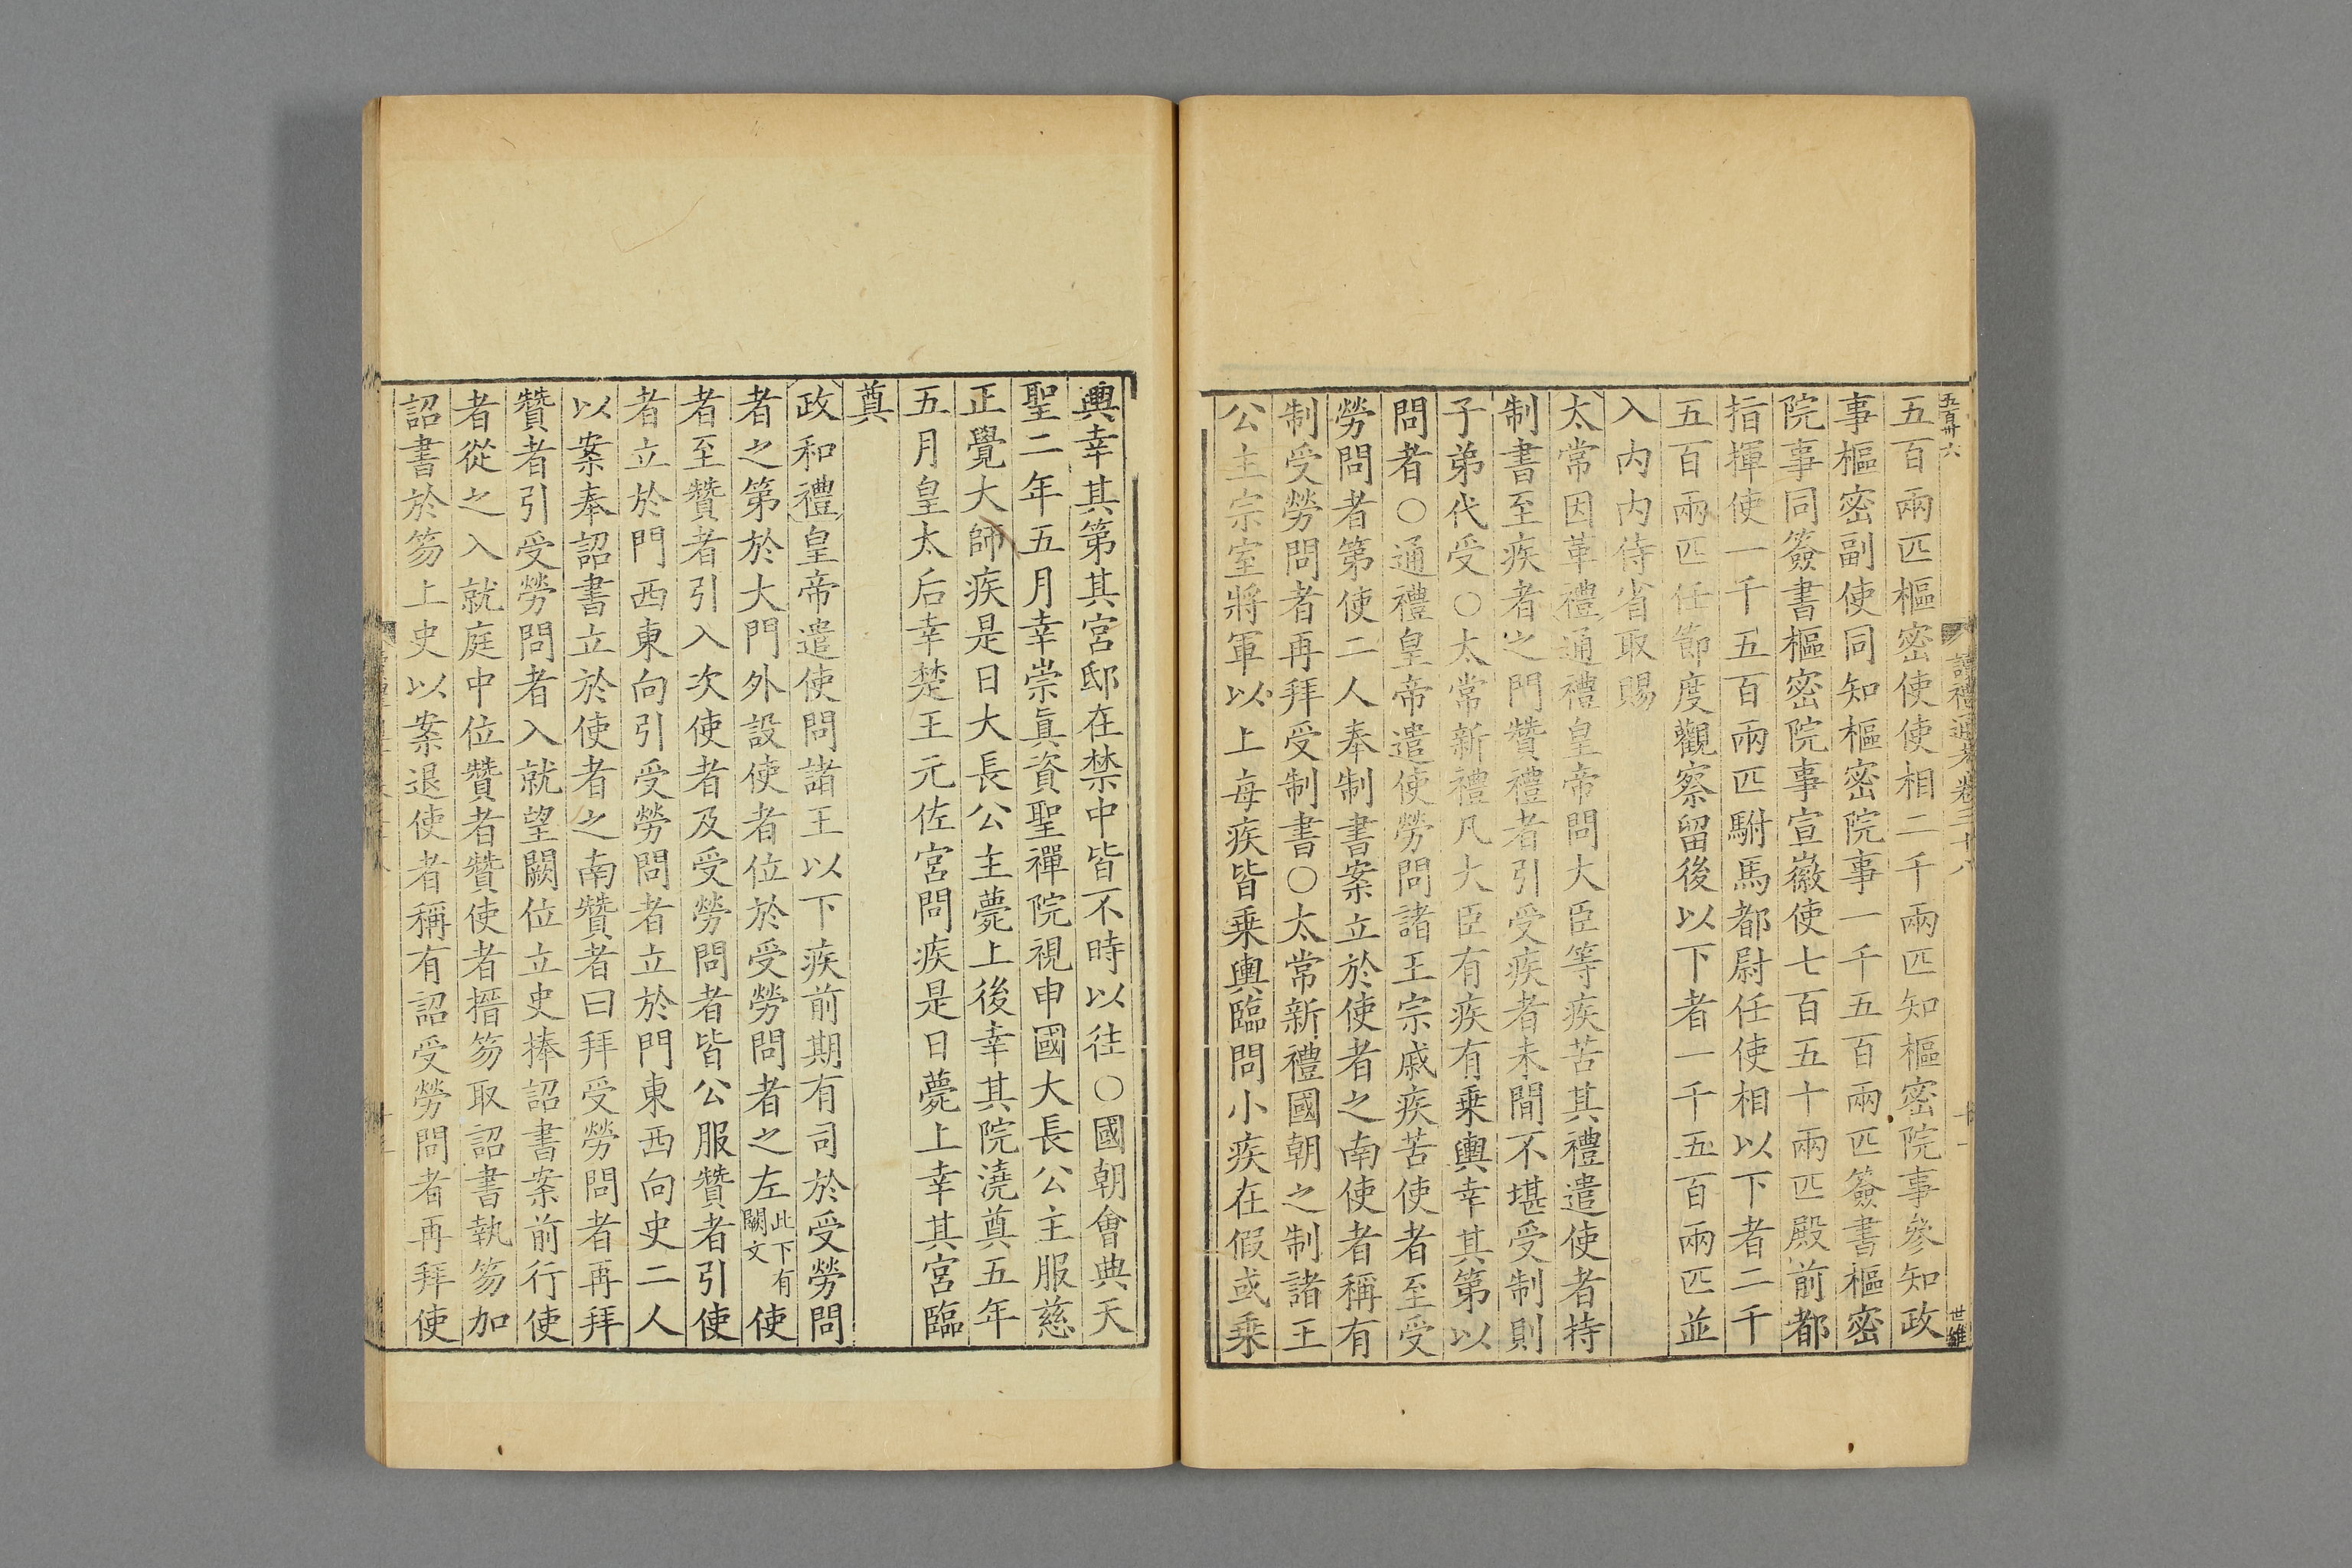 五百卅六
讀禮通考卷三十八
十一
世維
五百兩匹樞密使使相二千兩匹知樞密院事參知政
事樞密副使同知樞密院事一千五百兩匹簽書樞密
院事同簽書樞密院事宣徽使七百五十兩匹殿前都
指揮使一千五百兩匹駙馬都尉任使相以下者二千
五百兩匹任節度觀察留後以下者一千五百兩匹並
入內內侍省取賜
太常因革禮通禮皇帝問大臣等疾苦其禮遣使者持
制書至疾者之門贊禮者引受疾者未間不堪受制則
子弟代受○太常新禮凡大臣有疾有乗輿幸其第以
問者○通禮皇帝遣使勞問諸王宗戚疾苦使者至受
勞問者第使二人奉制書案立於使者之南使者稱有
制受勞問者再拜受制書○太常新禮國朝之制諸王
公主宗室將軍以上每疾皆乗輿臨問小疾在假或乗
輿幸其第其宮邸在禁中皆不時以往○國朝會典天
聖二年五月幸崇眞資聖禪院視申國大長公主服慈
正覺大師疾是日大長公主薨上後幸其院澆奠五年
五月皇太后幸楚王元佐宮問疾是日薨上幸其宮臨
奠
政和禮皇帝遣使問諸王以下疾前期有司於受勞問
者之第於大門外設使者位於受勞問者之左此下有闕文使
者至贊者引入次使者及受勞問者皆公服贊者引使
者立於門西東向引受勞問者立於門東西向史二人
以案奉詔書立於使者之南贊者曰拜受勞問者再拜
贊者引受勞問者入就望闕位立史捧詔書案前行使
者從之入就庭中位贊者贊使者搢笏取詔書執笏加
詔書於笏上史以案退使者稱有詔受勞問者再拜使